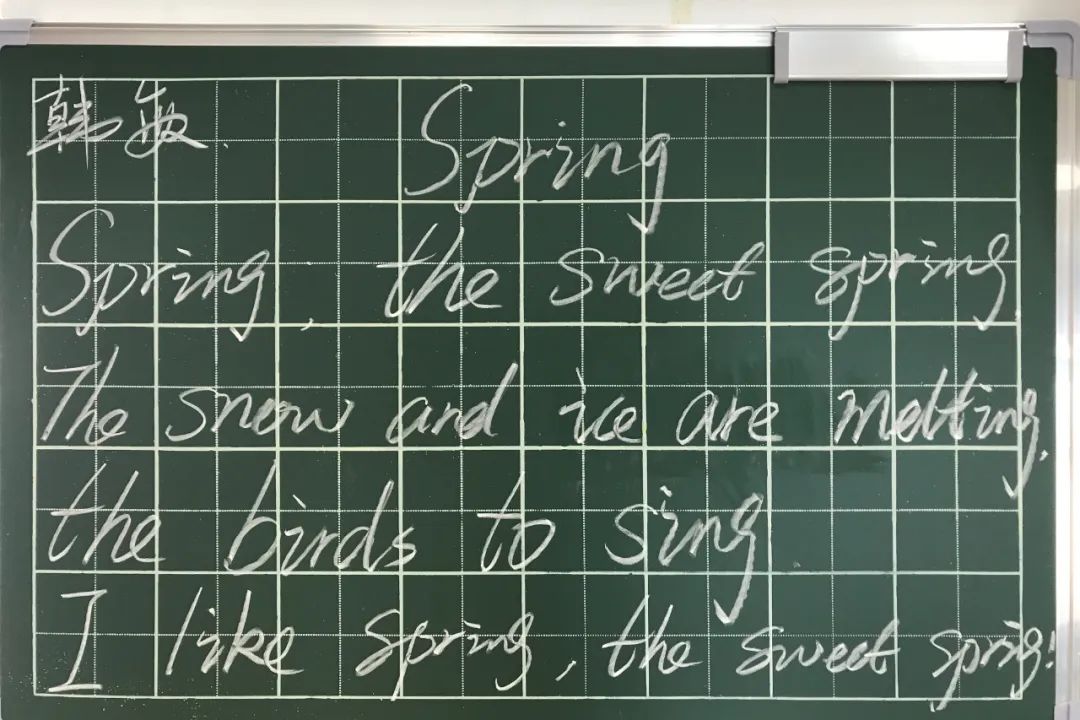 韩敏.
Spring
Spring, the sweet spring
The snow and ice are melting,
the birds to sing
I like spring, the sweet spring!